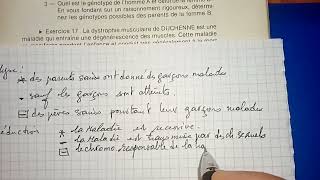 3 – Quel est le génotype de l'homme A et
En vous fondant sur un raisonnement rigoureux, détermi-
nez les génotypes possibles des parents de la femme B.
► Exercice 17 . La dystrophie musculaire de DUCHENNE est une
maladie qui entraîne une dégénérescence des muscles. Cette maladie
* des parents sains ont donné des garçons malades
- sauf les garçons sont atteints.
des pères sains pourtant leur garçons malades
* la Maladie est recessive.
- la Maladie est transmise par des ch sexuels
le chromo. responsable de la